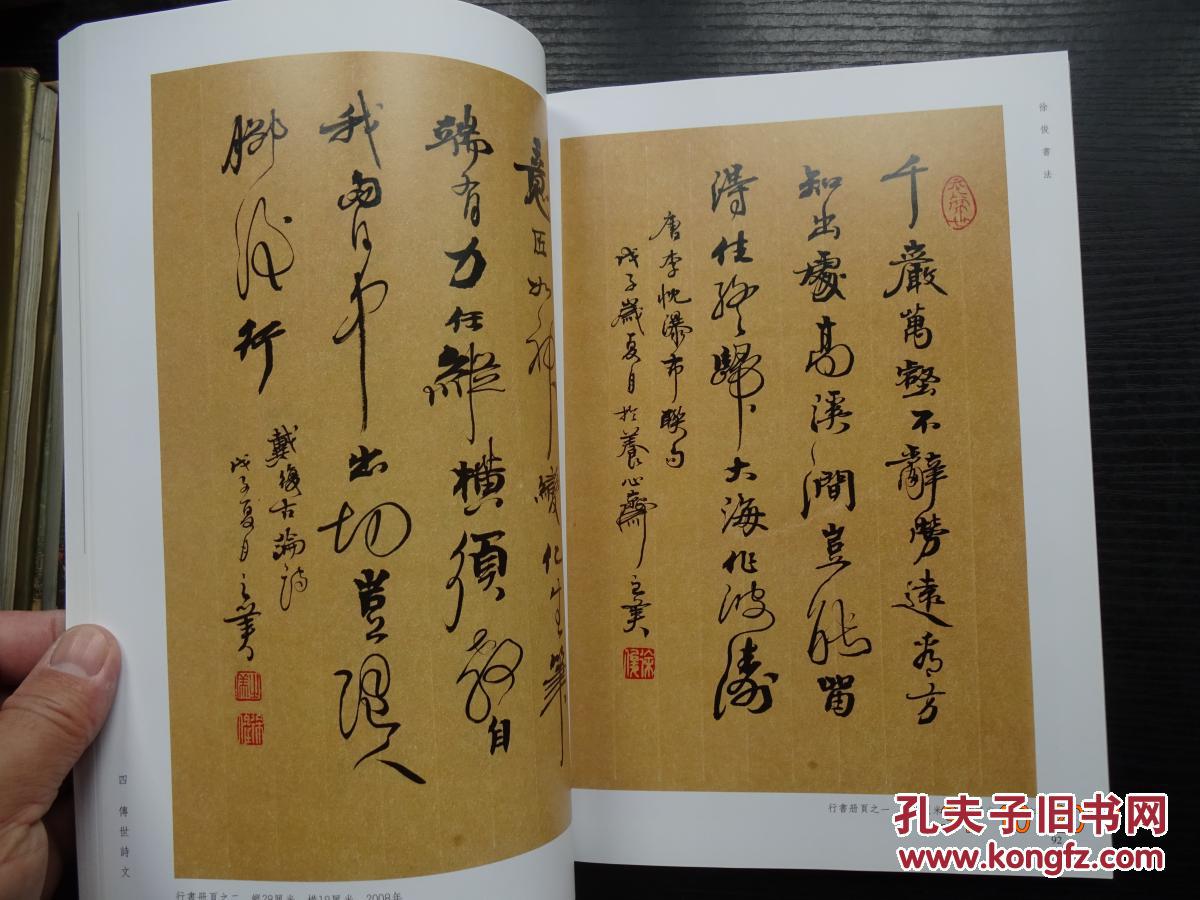 徐俊書法
千巖萬壑不辭勞遠看方
知出處高溪〻澗豈能留
得住終歸大海作波濤
唐李忱瀑布聯句
戊子歲夏月於養心齋之美
徐俊
行書册頁之一
92
意匠如神變化生筆
端有力任縱橫須教自
我胸中出切忌隨人
腳後行
戴復古論詩
戊子夏月之美
徐俊
四 傳世詩文
行書册頁之二 2008年
孔夫子旧书网
www.kongfz.com